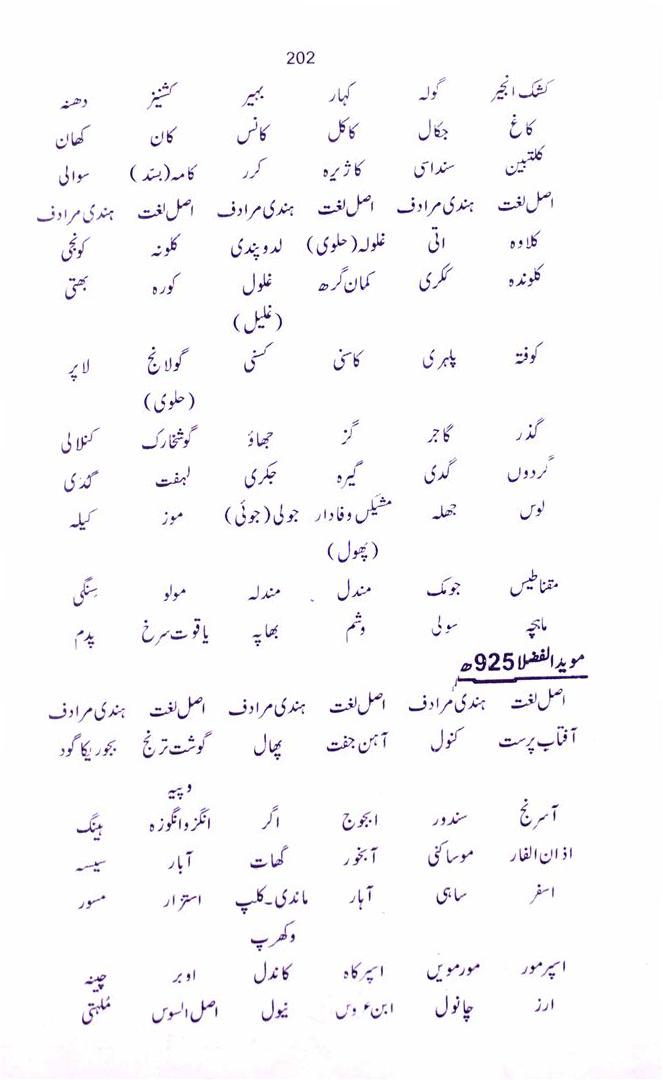 202
کشک انجیر گولہ کہار بہیر کشنیز دھنہ
کاغ جکال کاکل کانس کان کھان
کلتبین سنداسی کاژیرہ کرر کامہ(بسَد) سوالی
اصل لغت ہندی مرادف اصل لغت ہندی مرادف اصل لغت ہندی مرادف
کلاوہ اتی غلولہ(حلوی) لدو پندی کلونہ کونجی
کلوندہ ککری کمان گرھ غلول کورہ بھتی
(غلیل)
کوفتہ پلہری کاسنی کسنی گولانج لاپر
(حلوی)
گذر گاجر گز جھاؤ گوشخارک کنلالی
گردوں گدی گیرہ جکری لہفت گدی
لوس جھلہ مشکیں وفادار جولی(جوئی) موز کیلہ
(پھول)
مقناطیس جومک مندل مندلہ مولو سنگی
ماہچہ سولی وشم بھاپہ یاقوت سرخ پدم
موید الفضلا 925ھ
اصل لغت ہندی مرادف اصل لغت ہندی مرادف اصل لغت ہندی مرادف
آفتاب پرست کنول آہن جفت پھال گوشت ترنج بجوریکا گود
وپیہ
آسرنج سندور ابجوج اگر انگزوانگوزہ ہینگ
اذان الفار موساکنی آبخور گھات آبار سیسہ
اسفر ساہی آہار ماندی۔کلپ استزار مسور
وکھرپ
اسپرمور مورمویں اسپرکاہ کاندل اوبر چینہ
ارز چانول ابن عروس نیول اصل السوس مُلہتی